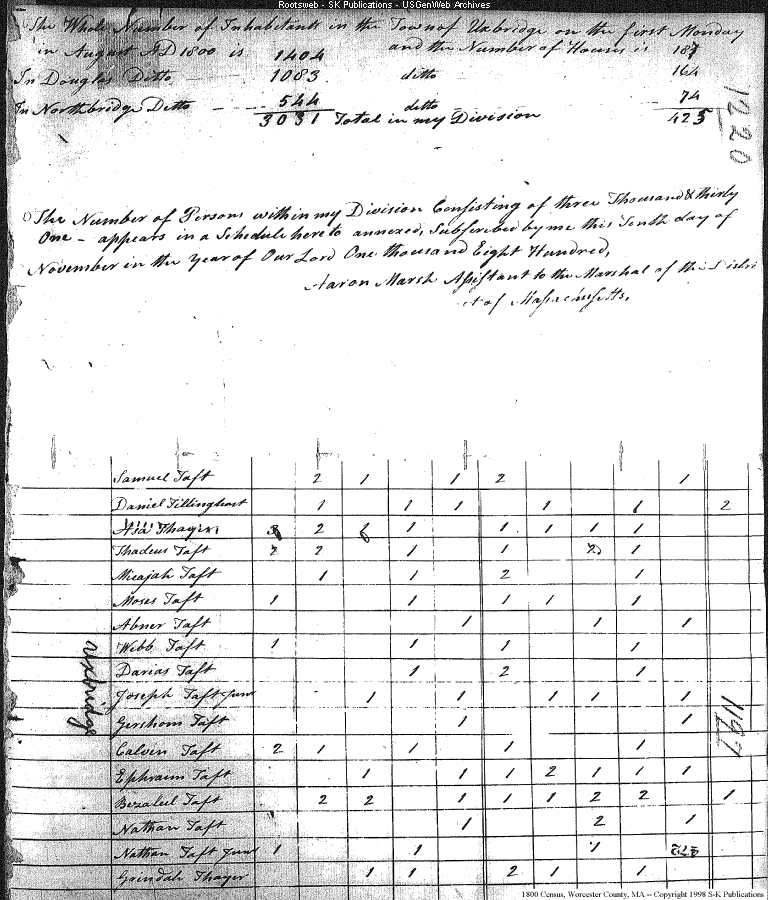 Rootsweb - SK Publications - USGenWeb Archives
The Whole Number of Inhabitants in the Town of Uxbridge on the first Monday
in August AD 1800 is 1404 and the Number of Houses is 187
In Douglas Ditto 1083 ditto 164
In Northbridge Ditto 544 ditto 74
3031 Total in my Division 425
1220
The Number of Persons within my Division Consisting of three Thousand & thirty
One - appears in a Schedule hereto annexed, Subscribed by me this Tenth day of
November in the Year of Our Lord One thousand Eight Hundred,
Aaron Marsh Assistant to the Marshal of the Distri
ct of Massachusetts,
Samuel Taft 2 1 1 2 1
Daniel Tillinghast 1 1 1 1 1 2
Asa Thayer 3 2 1 1 1 1 1
Thadeus Taft 2 2 1 1 2 1
Micajah Taft 1 1 2 1
Moses Taft 1 1 1 1 1
Abner Taft 1 1 1
Webb Taft 1 1 1 1
Darias Taft 1 2 1
Joseph Taft Junr 1 1 1 1 1
Gershom Taft 1 1
Calven Taft 2 1 1 1 1
Ephraim Taft 1 1 1 2 1 1 1
Bezaleel Taft 2 2 1 1 1 2 2 1
Nathan Taft 1 2 1
Nathan Taft Junr 1 1 1
Grindals Thayer 1 1 2 1 1
Uxbridge
1197
1800 Census, Worcester County, MA -- Copyright 1998 S-K Publications